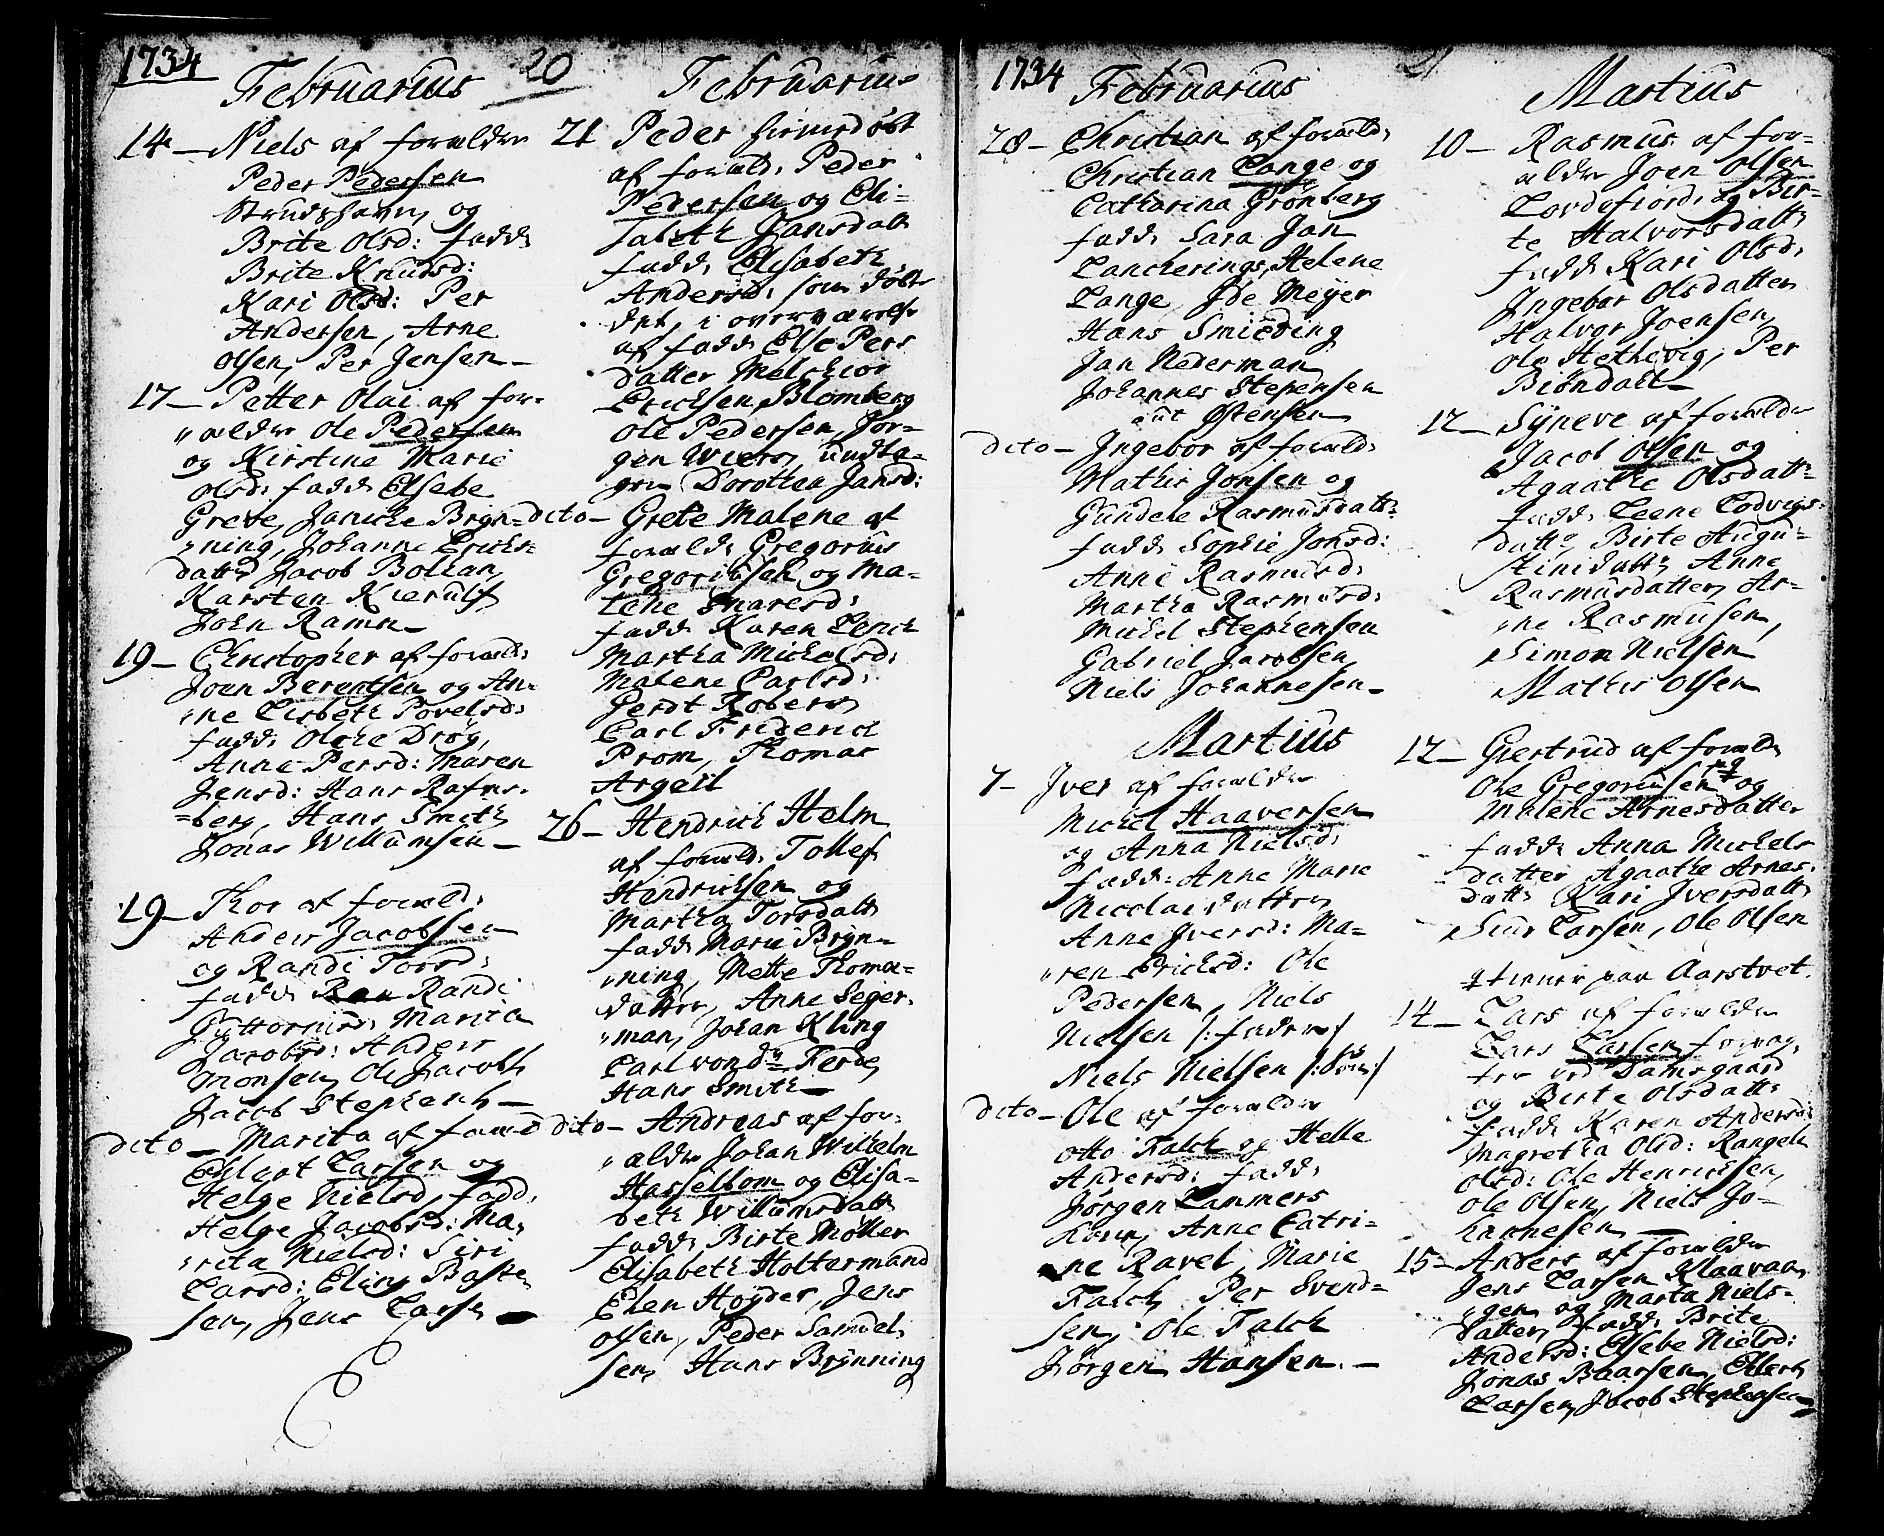 1734
20
Februarius
14 – Niels af forældre
Peder Pedersen
Strudshavn, og
Brite Olsd: fadd:
Brite Knudsd:
Kari Olsd: Per
Andersen, Arne
Olsen, Per Jensen –
17 – Petter Olai af for-
"ældre Ole Pedersen
og Kirstine Marie
Olsd: fadd: Elsebe
Greve, Janicke Bryn-
"ning, Johanne Erichs-
datter Jacob Boltan,
Karsten Kierulf
John Ramn –
19 – Christopher af foræld:
Joen Berentsen og An-
"ne Lisbeth Povelsd:
fadd: Oleche Drog,
Anne Persd: Maren
Jensd: Hans Rafns-
"berg, Hans Smith
Jonas Willumsen –
19 – Thor af foræld:
Anders Jacobsen
og Randi Torsd:
fadd: Randi
Guttormsd: Marita
Jacobsd: Anders
Monsen, Ole Jacobs:
Jacob Stephens –
dito – Marita af foræld
Larsen og
Helge Nielsd, fadd:
Helge Jacobsd: Ma-
"rita Nielsd: Siri
Larsd: Eling Baste-
sen, Jens Larsen –
Februarius
21 Peder hiemdøbt
af foræld: Peder
Pedersen og Eli-
sabeth Jansdatt:
fadd: Elisabeth
Andersd: som døbte
det, i overværelse
af fadd: Else Pers
datter Melchior
Erichsen Blomberg
Ole Pedersen, Jør-
gen Wiers, undta-
gen Dorothea Jansd:
dito – Grete Malene af
foræld: Gregorius
Gregoriusen og Ma-
lene Snaresd:
fadd: Karen Lerich
Martha Michelsd:
Malene Carlsd:
Gerdt Roberts
Carl Friderich
Prom, Thomas
Argeil
26 – Hendrich Helm
af foræld: Tollef
Hendrichsen og
Martha Torsdatt:
fadd: Marie Bryn-
"ning, Mette Thomæ-
datter, Anne Seger-
"man, Johan Kling
Carl vond: Ferde,
Hans Smith –
dito – Andreas af for-
"ældre Johan Wilhelm
Hasselbom og Elisa-
beth Willumsdatt:
fadd: Birte Møller
Elisabeth Holtermand
Elen Høyder, Jens
Olsen, Peder Samuel-
sen, Hans Brynning
1734
21
Februarius
28 – Christian af foræld:
Christian Lange og
Catharina Grønberg
fadd: Sara Jan
Lancherings, Helene
Lange, Ide Meyer
Hans Smieding
Jan Nederman
Johannes Stephensen
aut Østensen
dito – Ingebor af foræld:
Mathis Jonsen og
Gundele Rasmusdatt:
fadd: Sophie Jonsd:
Anne Rasmusd:
Martha Rasmusd:
Michel Stephensen
Gabriel Jacobsen
Niels Johannesen –
Martius
7 – Iver af forældre
Michel Haaversen
og Anna Nielsd:
fadd: Anne Marie
Nicolai datter
Anne Iversd: Ma-
"ren Erichsd: Ole
Pedersen, Niels
Nielsen /:faderen/
Niels Nielsen /:Søn:/
dito – Ole af forældre
Otto Falch og Helle
Andersd: fadd:
Jørgen Lammers
Anne Catri-
ne Ravel, Marie
Falch, Per Svend-
sen, Ole Falch
Jørgen Hansen. –
Martius
10 – Rasmus af for-
ældre Joen Olsen
Lordefiord: og Bir-
te Halvorsdatt:
fadd: Kari Olsd:
Ingebor Olsdatter
Halvor Joensen,
Ole Hethevig, Per
Biøndahl –
12 – Syneve af forældre
Jacob Olsen og
Agaathe Olsdatt:
fadd: Leene Lodvigs-
datt:, Birte Augu-
stinidatt:, Anne
Rasmusdatter, Ar-
"ne Rasmusen,
Simon Nielsen
Mathis Olsen
12 – Giertrud af foræld:
Ole Gregoriusen og
Malene Arnesdatter
fadd: Anna Michels
datter Agaathe Arnes-
datt: Kari Iversdatt:
Siur Larsen, Ole Olsen
tiener paa Aarstvet.
14 – Lars af forældre
Lars Larsen forpag-
ter ved Damsgaard
og Birte Olsdatt:
fadd: Karen Andersd:
Magretha Olsd: Rangele
Olsd: Ole Henrichsen,
Ole Olsen, Niels Jo-
hannesen –
15 – Anders af forældre
Jens Larsen Klaavaa,
"gen og Marta Niels-
datter, fadd: Brite
Andersd: Elsebe Nielsd:
Jonas Baarsen, Ellert
Larsen, Jacob Stephensen